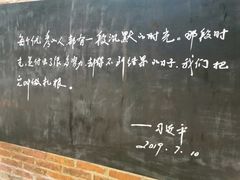 每个优秀的人,都有一段沉默的时光。那段时
光,是付出了很多努力,却得不到结果的日子,我们把
它叫做扎根。
——习近平
2019.7.10